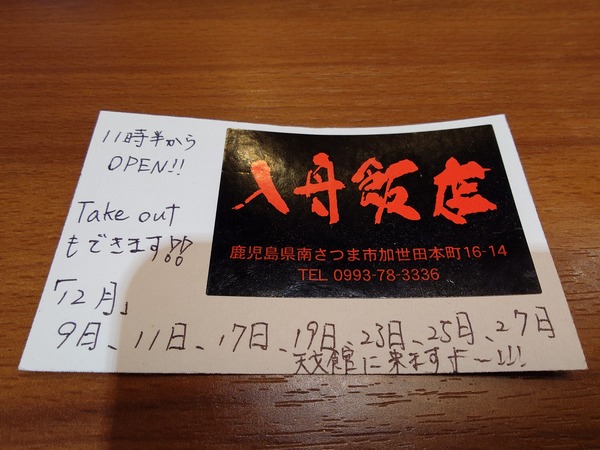 11時半から
OPEN!!
Take out
もできます!!
入舟飯店
鹿児島県南さつま市加世田本町16-14
TEL 0993-78-3336
「12月」
9日、11日、17日、19日、23日、25日、27日
天文館に来ますよ〜!!!